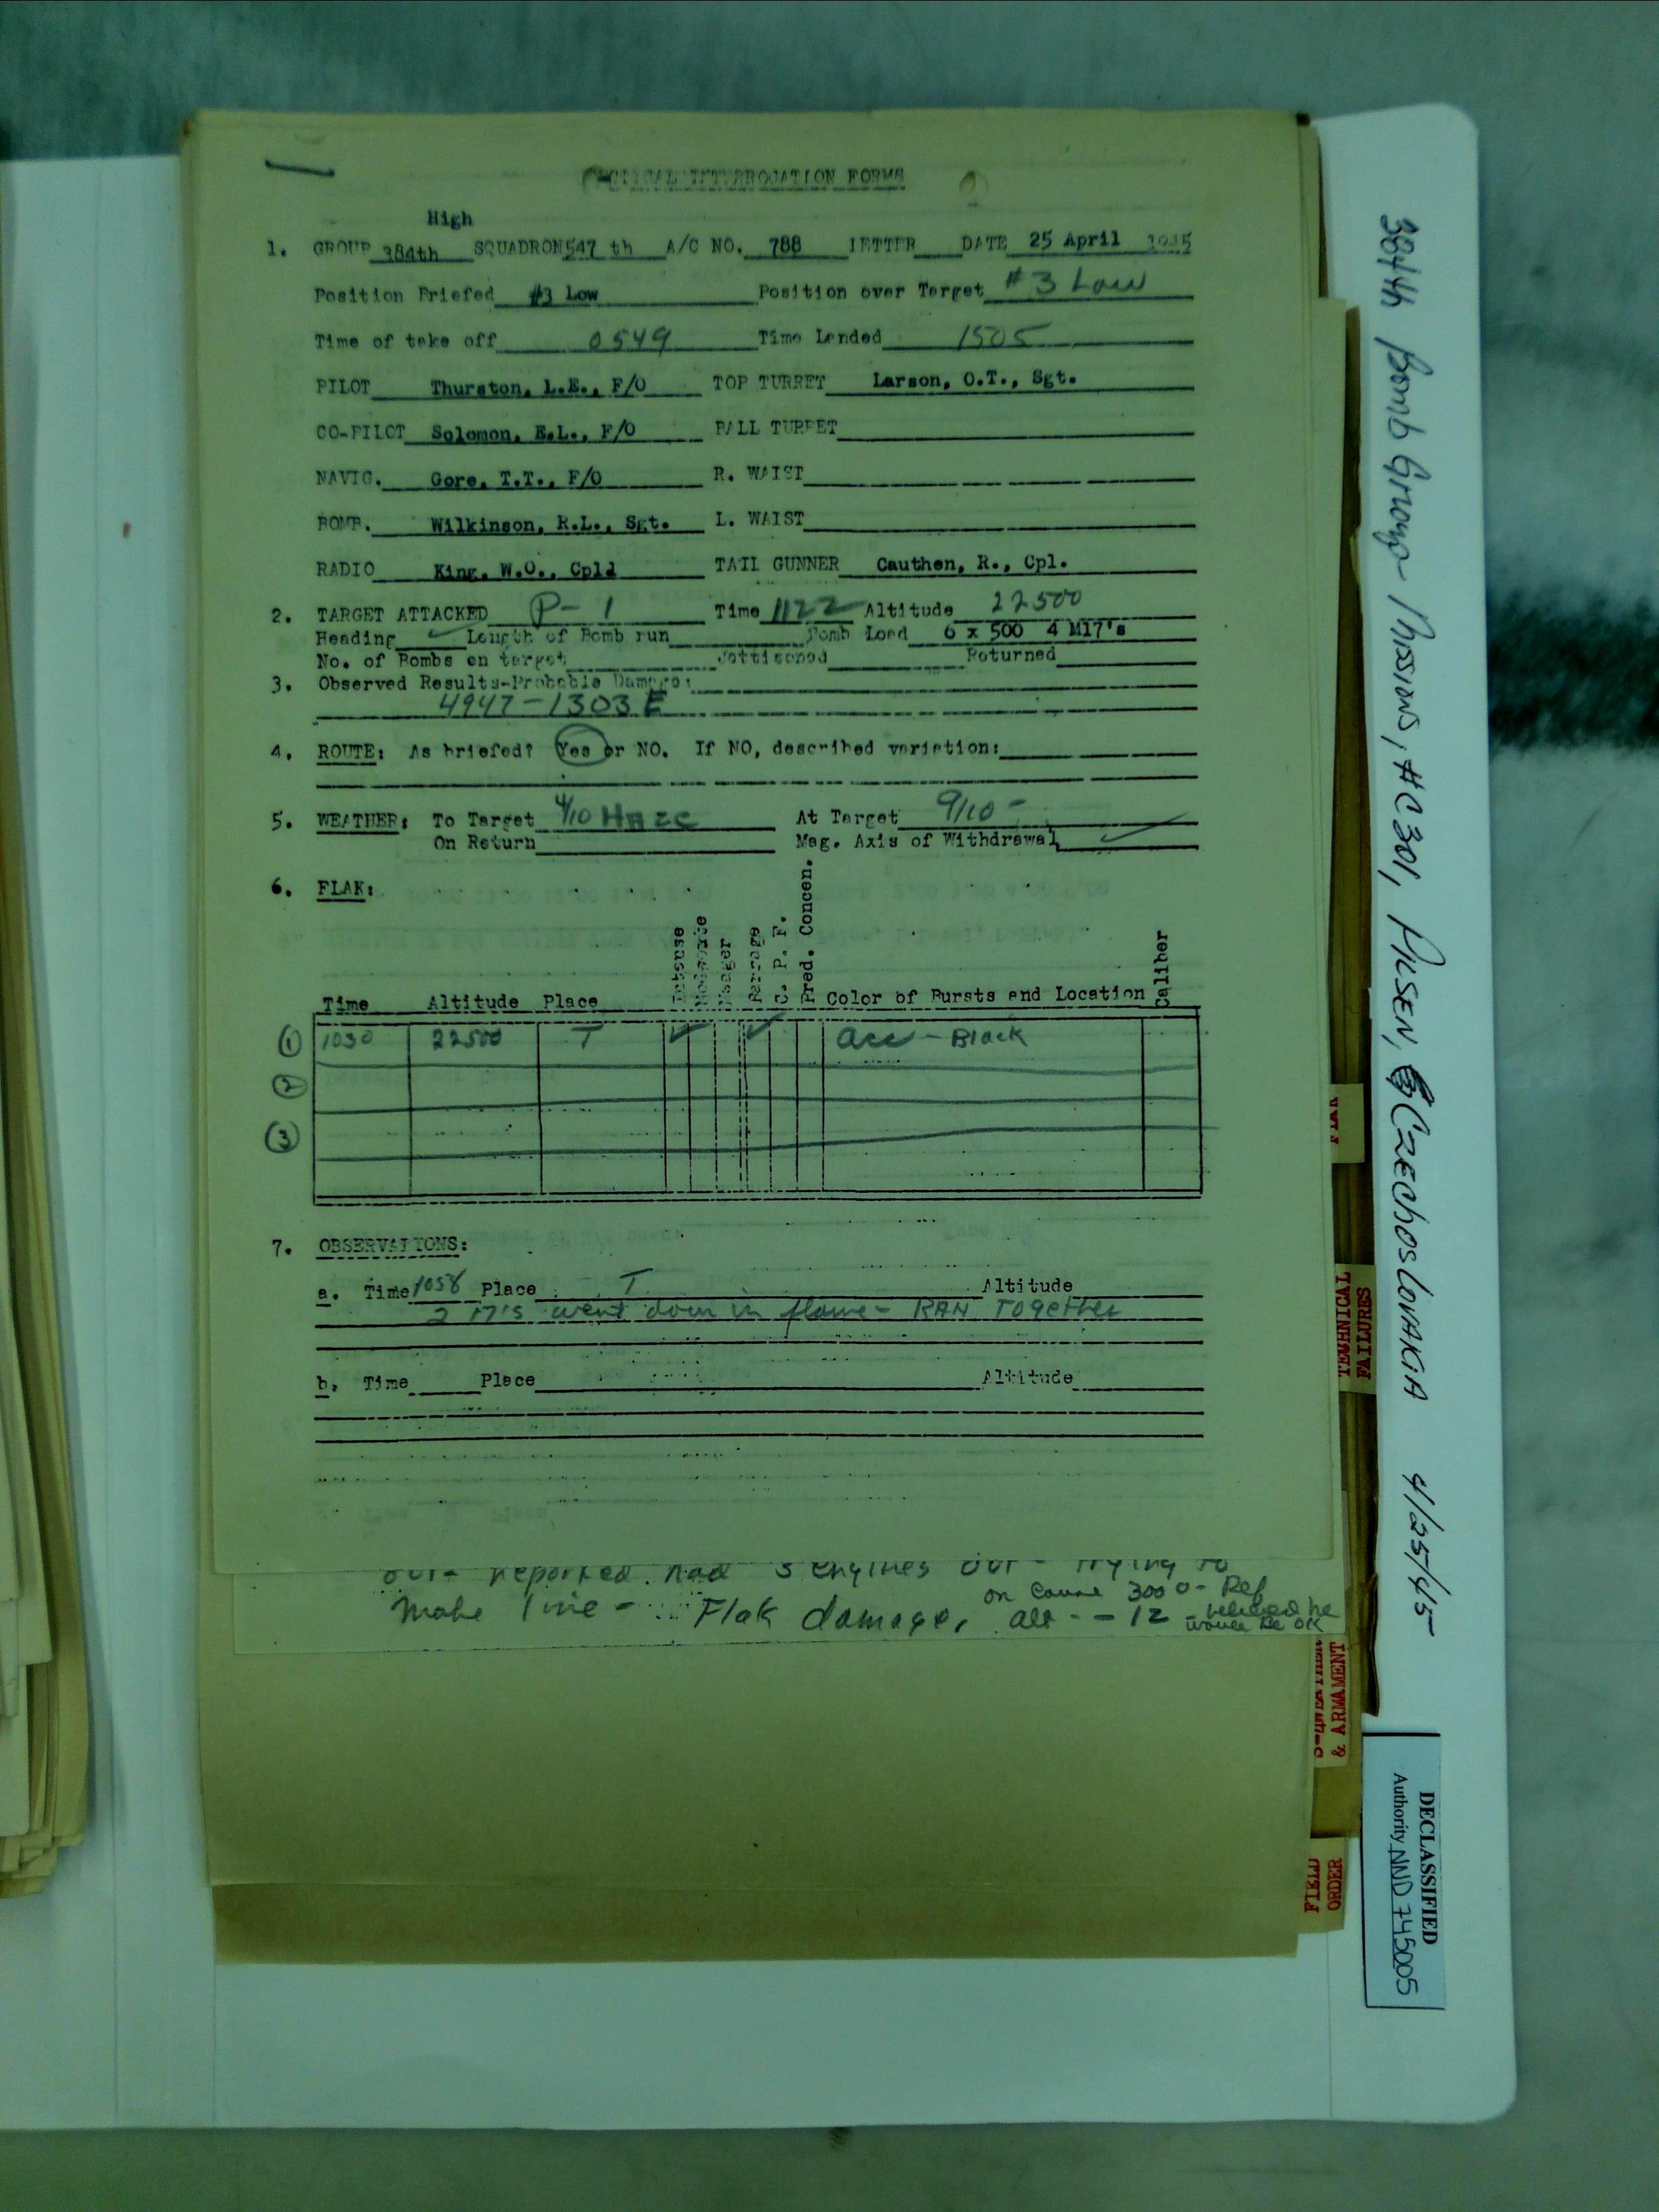 TACTICAL INTERROGATION FORMS
High
1. GROUP 384th SQUADRON 547 th A/C NO. 788 LETTER DATE 25 April 1945
Position Briefed #3 Low Position over Target #3 Low
Time of take off 0549 Time Landed 1505
PILOT Thurston, L.E., F/O TOP TURRET Larson, O.T., Sgt.
CO-PILOT Solomon, E.L., F/O BALL TURRET
NAVIG. Gore, T.T., F/O R. WAIST
BOMB. Wilkinson, R.L., Sgt. L. WAIST
RADIO King, W.O., Cpld TAIL GUNNER Cauthen, R., Cpl.
2. TARGET ATTACKED P-1 Time 1122 Altitude 22500
Heading Length of Bomb run Bomb Load 6 x 500 4 M17's
No. of Bombs on target Jettisoned Returned
3. Observed Results-Probable Damage:
4947-1303E
4. ROUTE: As briefed? Yes or NO. If NO, described variation:
5. WEATHER: To Target 4/10 Haze At Target 9/10 -
On Return Mag. Axis of Withdrawal ✓
6. FLAK:
Time Altitude Place Intense Moderate Meager Barrage C. P. F. Pred. Concen. Color of Bursts and Location Caliber
① 1030 22500 T ✓ ✓ acc - Black
②
③
7. OBSERVATIONS:
a. Time 1058 Place T Altitude
2 17's went down in flame - RAN TOgether
b. Time Place Altitude
out - Reported had 3 engines out - trying to
make line - Flak damage, on Course 300° - Ref
alt - - 12 - believed he
would be OK
384th Bomb Group Missions, #C301, PilsEN, CZEChoslovAKiA 4/25/45
FLAK
TECHNICAL
FAILURES
& ARMAMENT
FIELD
ORDER
DECLASSIFIED
Authority NND 745005